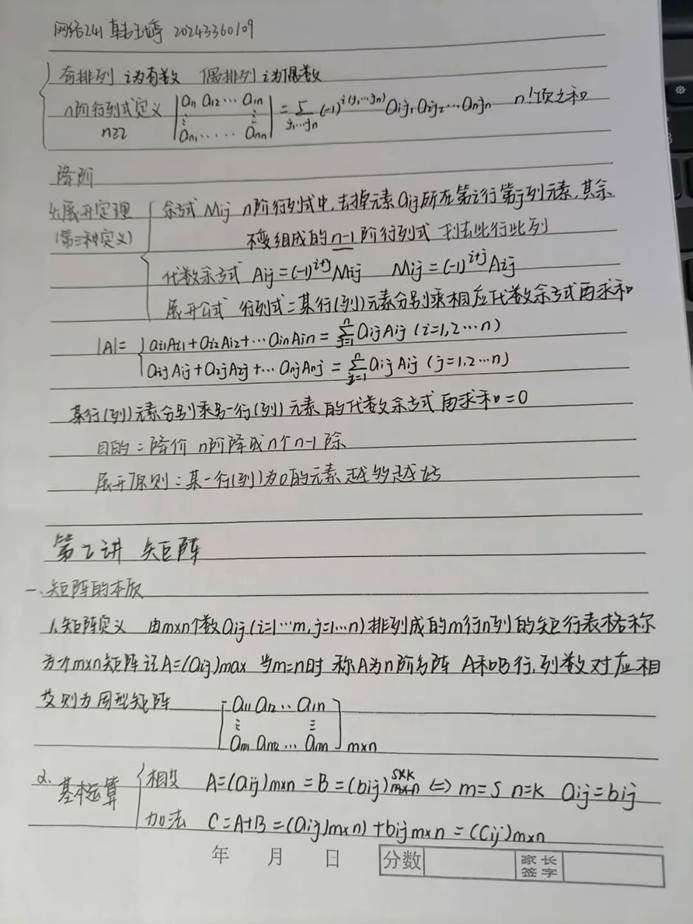 网络241 韩玉婷 20243360109
奇排列 i为奇数 偶排列 i为偶数
n阶行列式定义 n≥2 |a11 a12 ⋯ a1n ⋮ ⋮ an1 ⋯ ⋯ ann| = Σ j1⋯jn (-1)^i(j1,⋯jn) a1j1 a2j2 ⋯ anjn n!项之和
降阶
展开定理 余式 Mij n阶行列式中,去掉元素aij所在第i行第j列元素,其余
(第三种定义) 不变组成的n-1阶行列式 划去此行此列
代数余子式 Aij=(-1)^i+j Mij Mij=(-1)^i+j Aij
展开公式 行列式=某行(列)元素分别乘相应代数余子式再求和
|A|= { ai1Ai1+ai2Ai2+⋯ainAin = Σ(j=1→n) aijAij (i=1,2⋯n)
a1jA1j+a2jA2j+⋯anjAnj = Σ(i=1→n) aijAij (j=1,2⋯n)
某行(列)元素分别乘另一行(列)元素的代数余子式再求和=0
目的:降价 n阶降成n个n-1阶
展开原则:某一行(列)为0的元素越多越好
第2讲 矩阵
一.矩阵的本质
1.矩阵定义 由m×n个数aij(i=1⋯m,j=1⋯n)排列成的m行n列的矩行表格称
为个m×n矩阵记A=(aij)m×n 当m=n时 称A为n阶方阵 A和B行.列数对应相
等则为同型矩阵 [a11 a12 ⋯ a1n
⋮ ⋮
am1 am2 ⋯ amn] m×n
2.基本运算 相等 A=(aij)m×n=B=(bij)s×k ⇔ m=s n=k aij=bij
加法 C=A+B=(aij)m×n)+bij m×n=(Cij)m×n
年 月 日 分数 家长签字